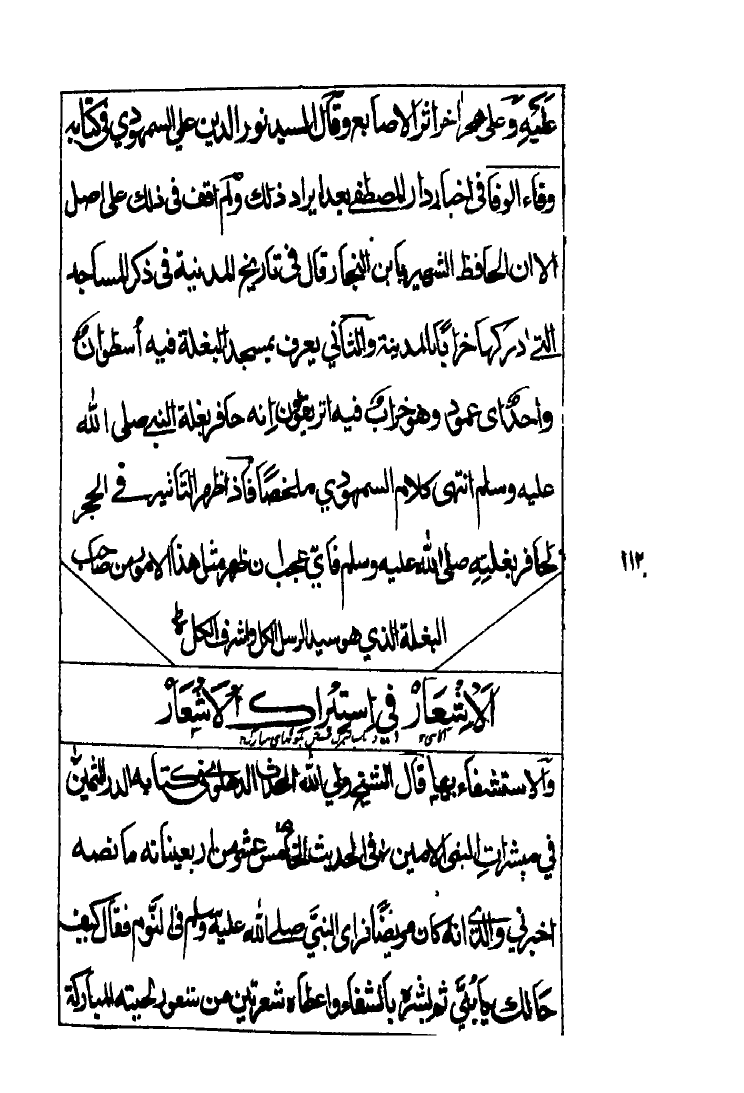 عليه وعلى حجر اخر اثر الاصابع وقال السيد نور الدين علي السمهودي في كتابه
وفاء الوفا في اخبار دار المصطفى بعد ايراد ذلك ولم اقف في ذلك على اصل
الا ان الحافظ الشهير بابن النجار قال في تاريخ المدينة في ذكر المساجد
التي ادركها خرابا بالمدينة والثاني يعرف بمسجد البغلة فيه أسطوانٌ
واحدٌ اى عمود وهو خرابٌ فيه اثر يقولون إنه حافر بغلة النبي صلى الله
عليه وسلم انتهى كلام السمهودي ملخصًا فاذا ظهر التأثير في الحجر
لحافر بغلته صلى الله عليه وسلم فاي عجب ان ظهر مثل هذا الامور من صاحب
البغلة الذي هو سيد الرسل الكل واشرف الكل
١١٢
اَلْاِشْعَارْ في استبراك اْلاَشْعَارْ
والاستشفاء بها قال الشيخ ولي الله المحدث الدهلوي في كتابه الدر الثمين
في مبشرات النبي الامين في الحديث الخامس عشر من اربعيناته ما نصه
اخبرني والدي انه كان مريضًا فراى النبيَّ صلى الله عليه وسلم في النوم فقال كيف
حالك يا بُنَيَّ ثم بشره بالشفاء واعطاه شعرتين من شعور لحيته المباركة